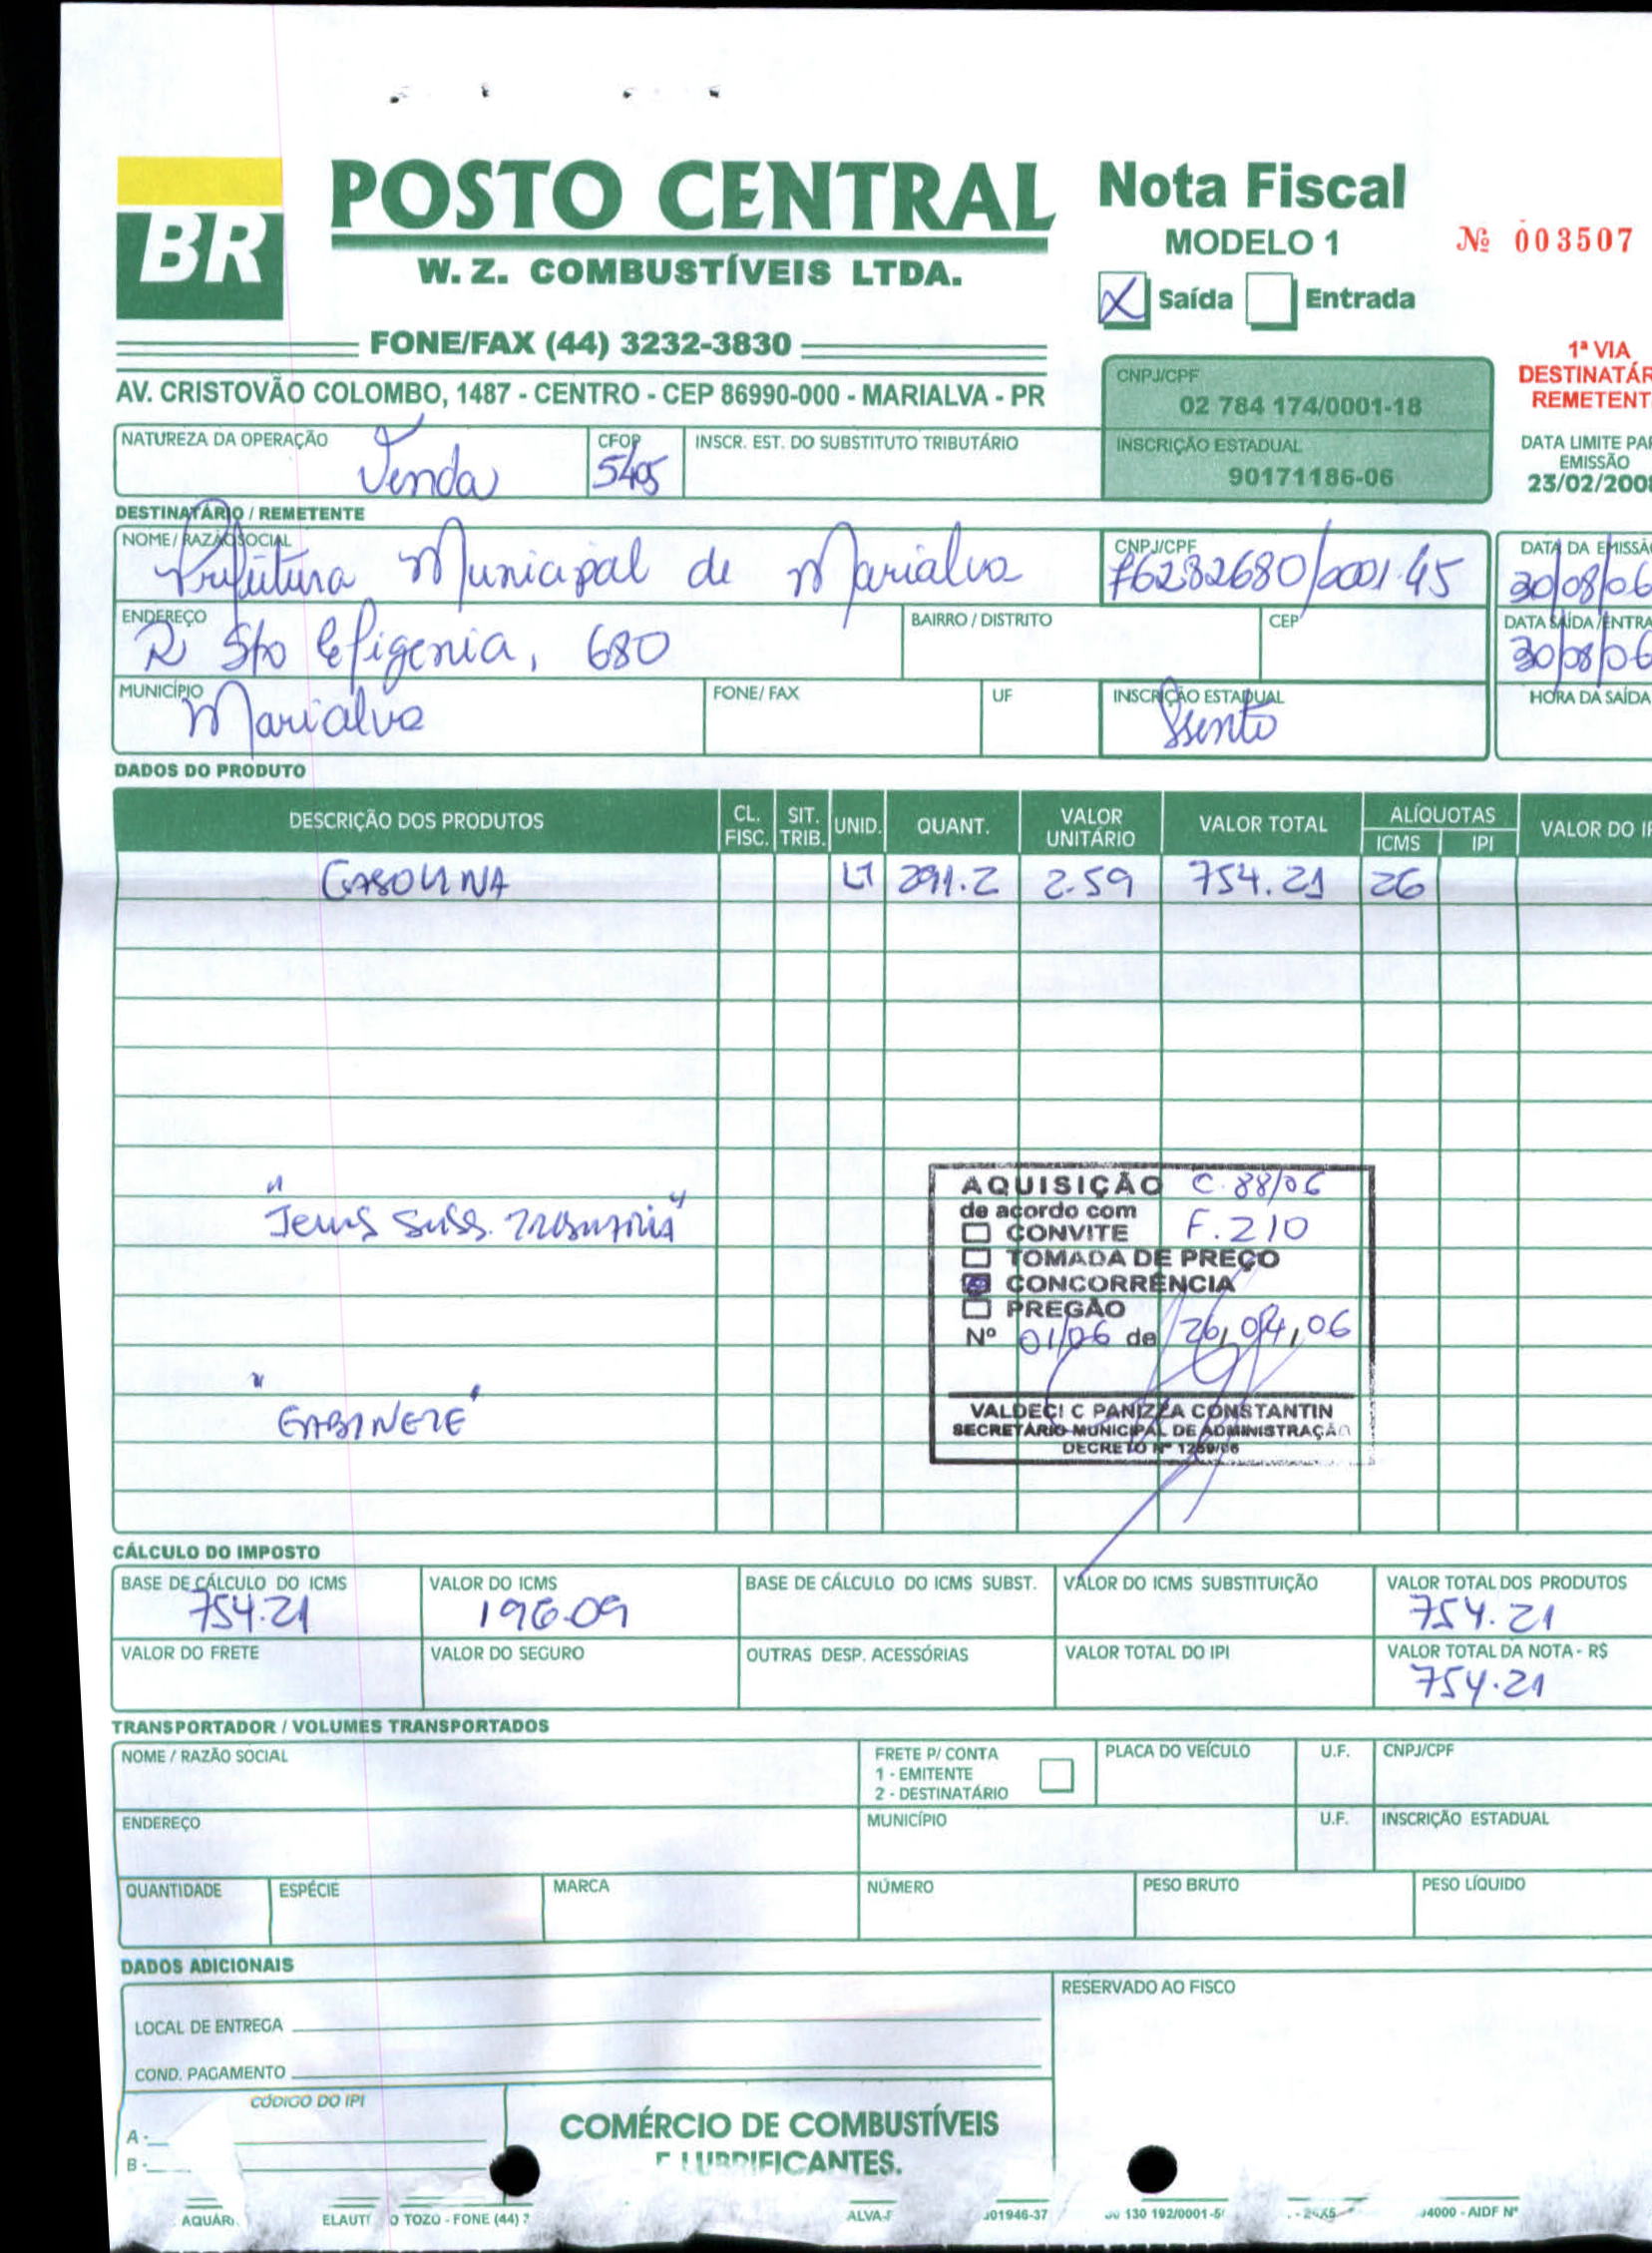 BR
POSTO CENTRAL
W. Z. COMBUSTÍVEIS LTDA.
FONE/FAX (44) 3232-3830
AV. CRISTOVÃO COLOMBO, 1487 - CENTRO - CEP 86990-000 - MARIALVA - PR
Nota Fiscal
MODELO 1
Nº 003507
X Saída Entrada
1ª VIA
DESTINATÁR
REMETENT
CNPJ/CPF
02 784 174/0001-18
INSCRIÇÃO ESTADUAL
90171186-06
DATA LIMITE PAR
EMISSÃO
23/02/2008
NATUREZA DA OPERAÇÃO CFOP INSCR. EST. DO SUBSTITUTO TRIBUTÁRIO
Venda 5405
DESTINATÁRIO / REMETENTE
NOME/ RAZÃO SOCIAL CNPJ/CPF DATA DA EMISSÃ
Prefeitura Municipal de Marialva 76282680/0001.45 30/08/06
ENDEREÇO BAIRRO / DISTRITO CEP DATA SAÍDA/ENTRA
R Sto Efigenia, 680 30/08/06
MUNICÍPIO FONE/ FAX UF INSCRIÇÃO ESTADUAL HORA DA SAÍDA
Marialva Isento
DADOS DO PRODUTO
DESCRIÇÃO DOS PRODUTOS CL. FISC. SIT. TRIB. UNID. QUANT. VALOR UNITÁRIO VALOR TOTAL ALÍQUOTAS ICMS IPI VALOR DO IP
GASOLINA LT 291.2 2.59 754.21 26
"
Icms Subs. Tributria"
" GABINETE"
AQUISIÇÃO C. 88/06
de acordo com
CONVITE F. 210
TOMADA DE PREÇO
CONCORRÊNCIA
PREGÃO
Nº 01/06 de 26,04,06
VALDECI C PANIZZA CONSTANTIN
SECRETÁRIO MUNICIPAL DE ADMINISTRAÇÃO
DECRETO Nº 1259/06
CÁLCULO DO IMPOSTO
BASE DE CÁLCULO DO ICMS VALOR DO ICMS BASE DE CÁLCULO DO ICMS SUBST. VALOR DO ICMS SUBSTITUIÇÃO VALOR TOTAL DOS PRODUTOS
754.21 196.09 754.21
VALOR DO FRETE VALOR DO SEGURO OUTRAS DESP. ACESSÓRIAS VALOR TOTAL DO IPI VALOR TOTAL DA NOTA - R$
754.21
TRANSPORTADOR / VOLUMES TRANSPORTADOS
NOME / RAZÃO SOCIAL FRETE P/ CONTA PLACA DO VEÍCULO U.F. CNPJ/CPF
1 - EMITENTE
2 - DESTINATÁRIO
ENDEREÇO MUNICÍPIO U.F. INSCRIÇÃO ESTADUAL
QUANTIDADE ESPÉCIE MARCA NÚMERO PESO BRUTO PESO LÍQUIDO
DADOS ADICIONAIS
RESERVADO AO FISCO
LOCAL DE ENTREGA
COND. PAGAMENTO
CÓDIGO DO IPI
A -
B -
COMÉRCIO DE COMBUSTÍVEIS
E LUBRIFICANTES.
AQUÁR ELAUT O TOZO - FONE (44) ALVA-P 01946-37 130 192/0001-5 4000 - AIDF Nº